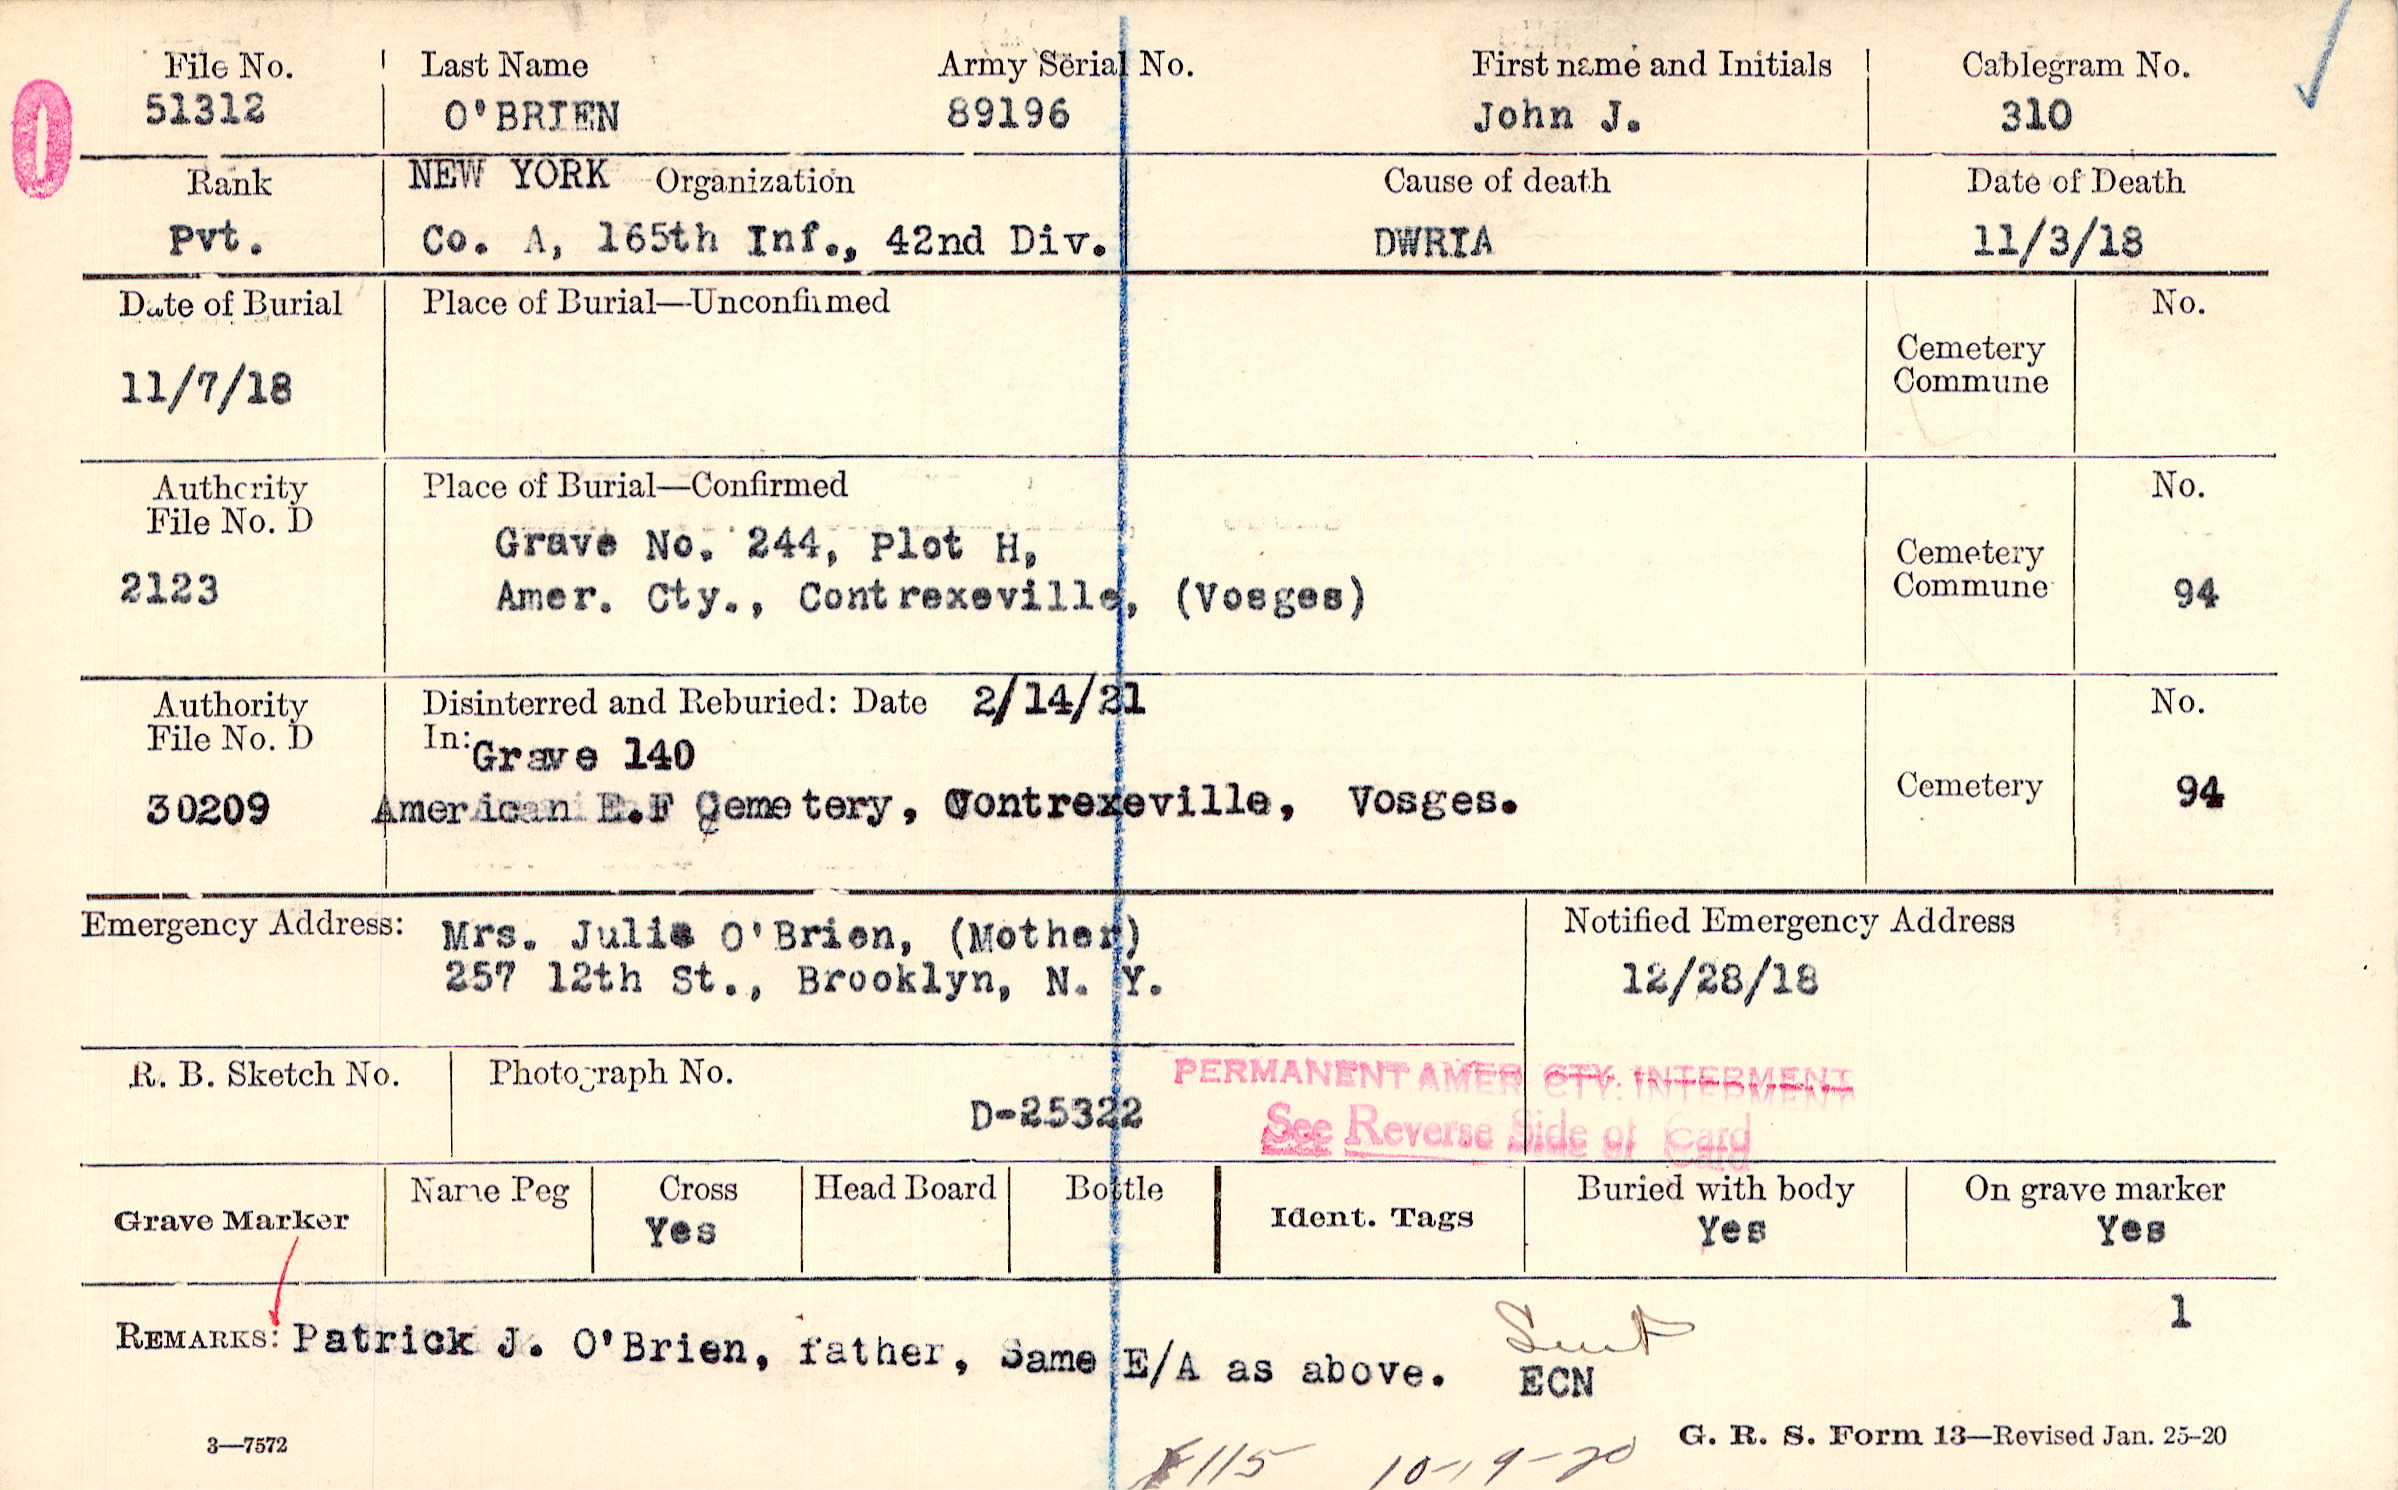 File No. Last Name Army Serial No. First name and Initials Cablegram No.
51312 O'BRIEN 89196 John J. 310
Rank NEW YORK Organization Cause of death Date of Death
Pvt. Co. A, 165th Inf., 42nd Div. DWRIA 11/3/18
Date of Burial Place of Burial—Unconfirmed No.
Cemetery
Commune
11/7/18
Authority Place of Burial—Confirmed No.
File No. D
Grave No. 244, Plot H,
Cemetery
Commune
2123 Amer. Cty., Contrexeville, (Vosges) 94
Authority Disinterred and Reburied: Date 2/14/21 No.
File No. D In: Grave 140
30209 American E.F Cemetery, Contrexeville, Vosges. Cemetery 94
Emergency Address: Mrs. Julia O'Brien, (Mother) Notified Emergency Address
257 12th St., Brooklyn, N. Y. 12/28/18
R. B. Sketch No. Photograph No. PERMANENT AMER CTY. INTERMENT
D-25322 See Reverse Side of Card
Grave Marker Name Peg Cross Head Board Bottle Ident. Tags Buried with body On grave marker
Yes Yes Yes
1
REMARKS: Patrick J. O'Brien, father, Same E/A as above. Sent
ECN
3—7572 G. R. S. Form 13—Revised Jan. 25-20
115 10-19-20